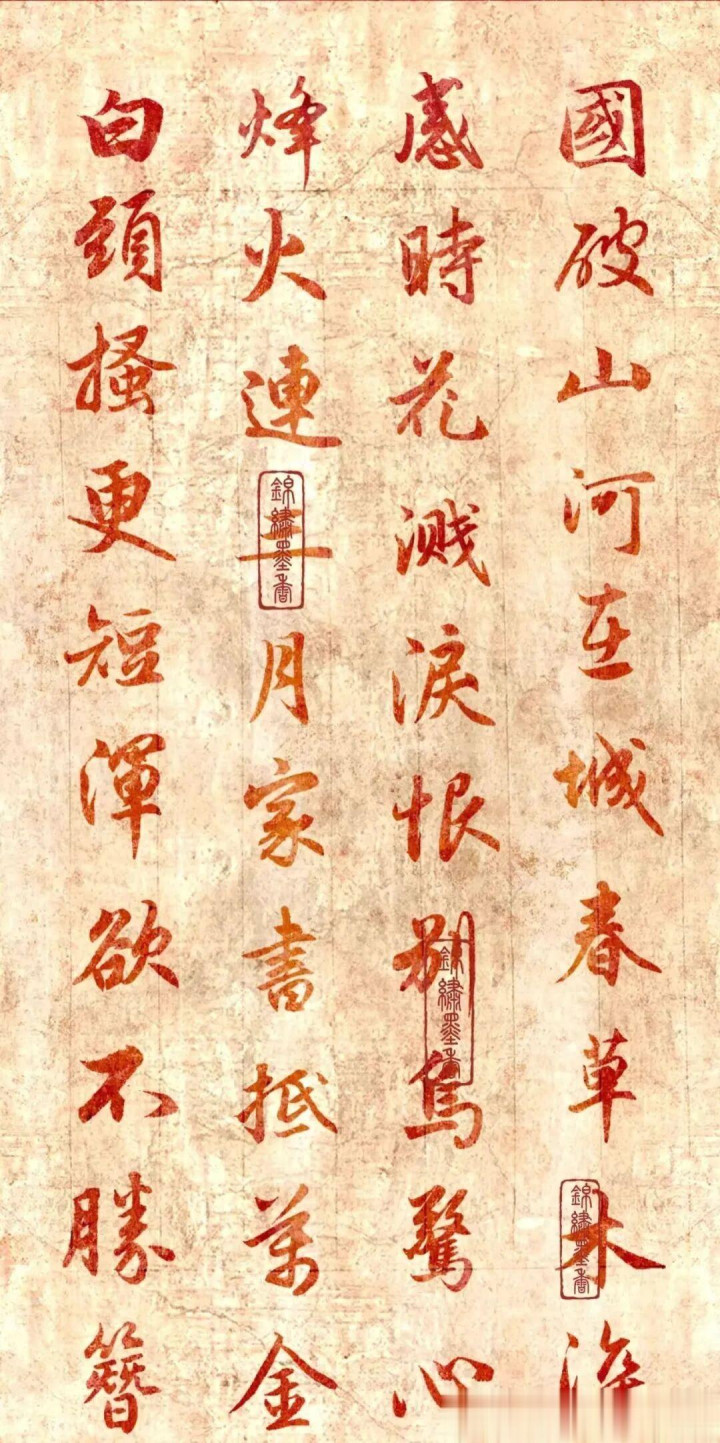 國破山河在城春草木深
感時花濺淚恨別鳥驚心
烽火連三月家書抵萬金
白頭搔更短渾欲不勝簪
錦繡墨香
錦繡墨香
錦繡墨香